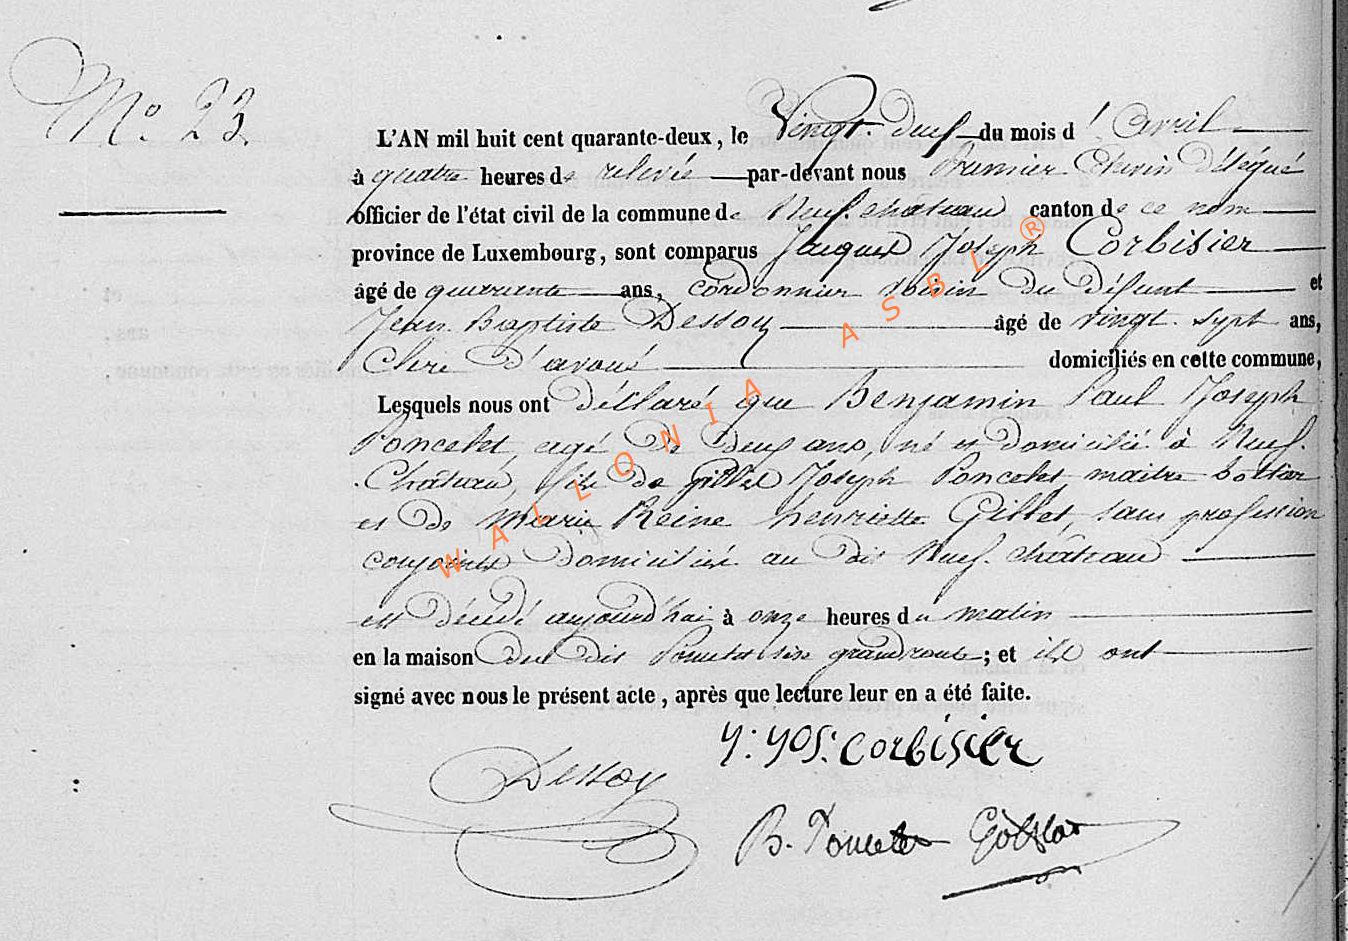 No. 23.
L'AN mil huit cent quarante-deux, le Vingt-deux du mois d'avril
à quatre heures de relevée par-devant nous Premier Echevin Délégué
officier de l'état civil de la commune de Neufchateau canton de ce nom
province de Luxembourg, sont comparus Jacques Joseph Corbisier
âgé de quarante ans, cordonnier voisin du défunt et
Jean Baptiste Dessoy âgé de vingt-sept ans,
Clerc d'avoué domiciliés en cette commune,
Lesquels nous ont déclaré que Benjamin Paul Joseph
Poncelet, agé de deux ans, né et domicilié à Neuf-
Château, fils de Gilles Joseph Poncelet maitre bottier
et de Marie Reine henriette Gillet, sans profession
conjoints domiciliés au dit Neuf-château
est décédé aujourd'hui à onze heures du matin
en la maison du dit Poncelet sise grand'route; et ils ont
signé avec nous le présent acte, après que lecture leur en a été faite.
J: JOS: CORBISIER
Dessoy
B. Poncelet
WALLONIA ASBL ®